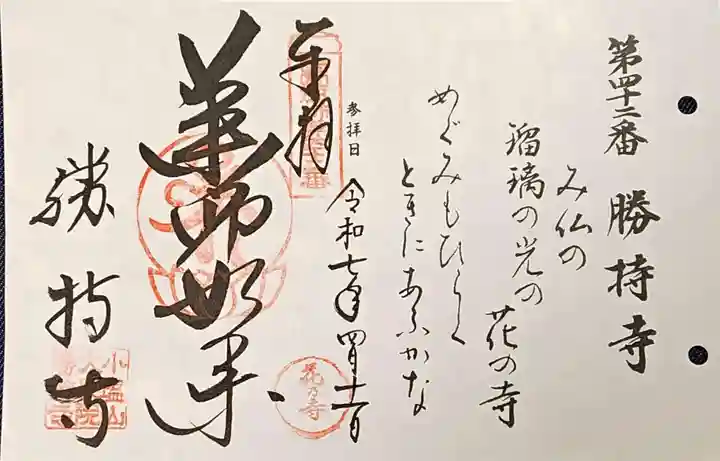 第四十二番 勝持寺
み仏の
瑠璃の光の
花の寺
めぐみもひらく
ときにあふかな
参拝日 令和七年四月十一日
奉拝
薬師如来
勝持寺
花の寺
小塩山